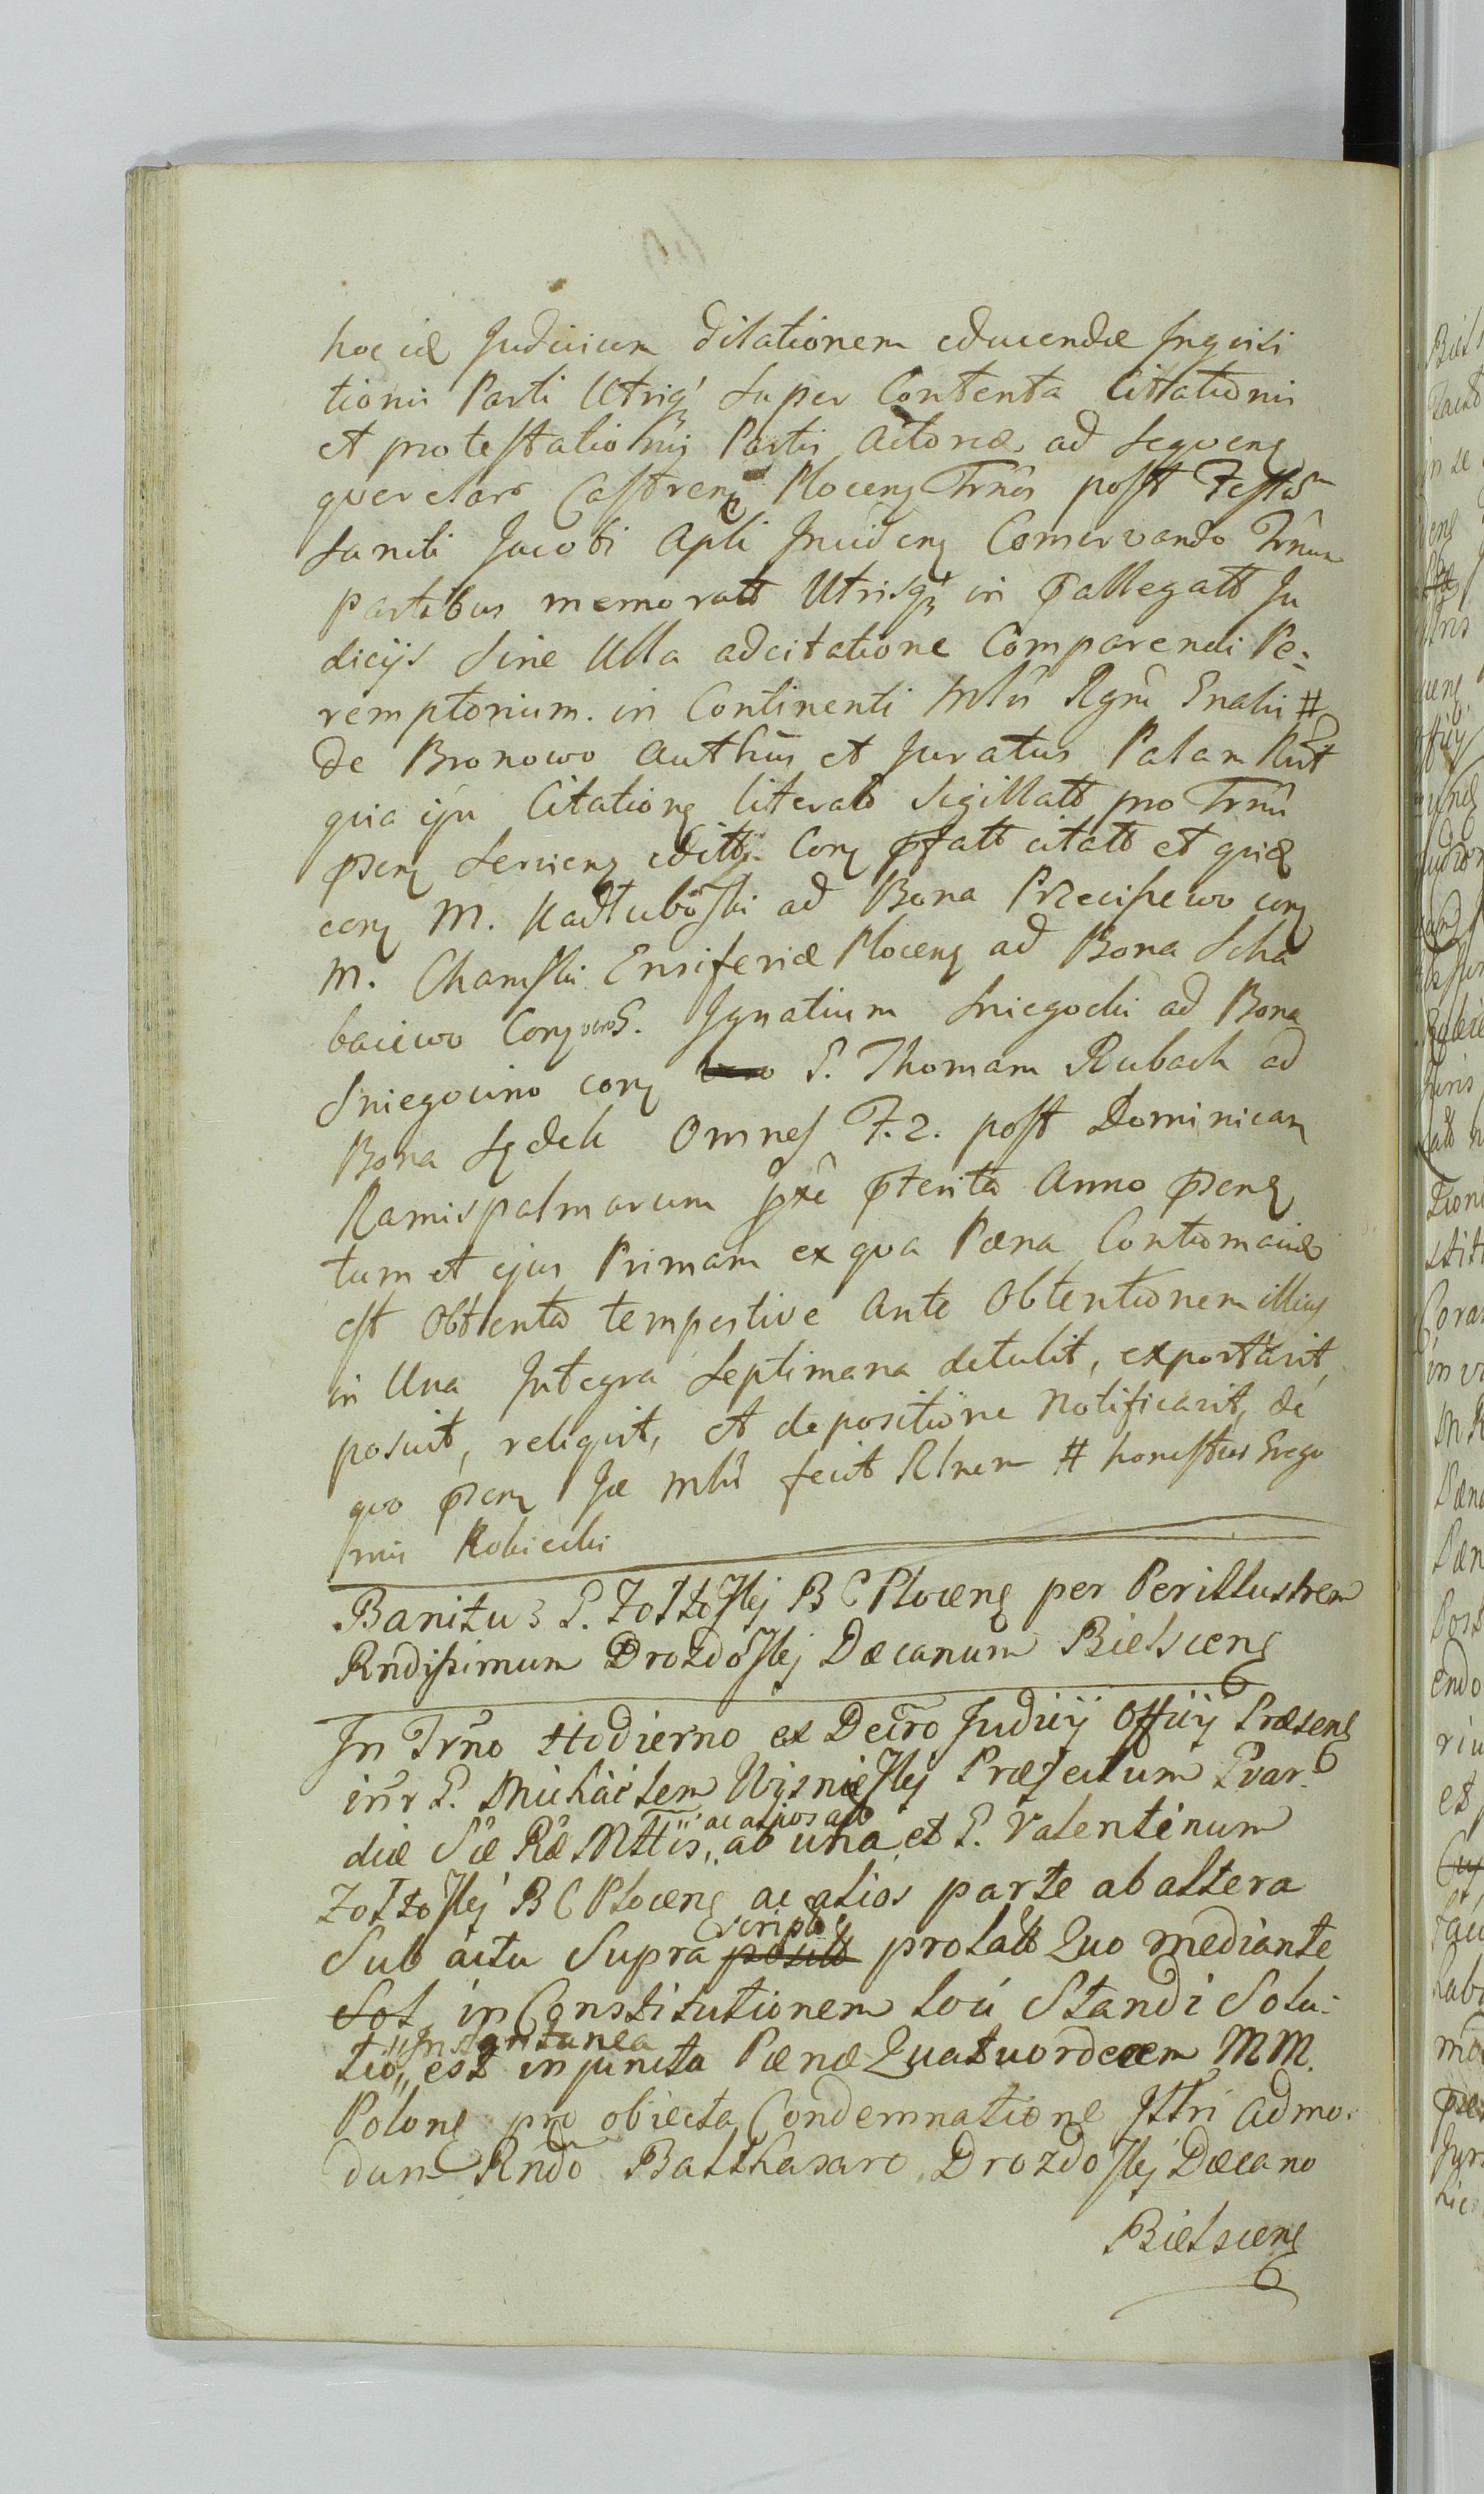 hoc id Judicium dilationem educendæ Inquisi
tionis Parti Utriq3 super Contenta Cittationis
et protestationis Partis Actoreæ ad sequens
querelar Castrens Plocens Trnôs post Festum
Sancti Jacobi Apli Inciden Conservando Trnum
Partibus memoratt Utrisq3 in pallegatt Ju
dicijs sine Ulla adcitatione Comparendi Pe:
remptorium. in Continenti Mlũ Rgni Gnalis #
de Bronowo Authus et Juratus Palam Rt
quia ipse Citationes literatt Sigillatt pro Trnũ
psen serviens editt. Cons pfatt citatt et quid
cons M. Kadłuboski ad Bona Przecisewo cons
M. Chamski Ensiferiæ Plocens ad Bona Scha
baiewo Cons vero G. Ignatium Sniegocki ad Bona
Sniegocino cons vero G. Thomam Rubach ad
Bona Sędek Omnes F. 2. post Dominicam
Ramispalmarum pterita Anno psens
tum et ejus Primam ex qua Pæna Contumaciæ
est Obtenta tempestive ante Obtentionem illius
in Una Integra Septimana detulit, exportarit,
posuit, reliquit, et depositione notificarit, de
quo psens Je Mlũ fecit Rlnem # honestus Grego
rius Kobiecki
Banitus G. Zołtoskj B C Plocens per Perillustrem
Rndissimum Drozdoskj Decanum Bielscens
In Trno Hodierno ex Decro Judicij Officij Præsens
intr G. Michäelem Wisnieskj Præfectum Gvar:
diæ Sæ Ræ Mttis, ac alios ab una et G. Valentinum
Zołtoskj B C Plocens ac alios parte ab altera
Sub actu Supra posito scripto prolatt Quo mediante
Sol in Constitutionem loci Standi Solu:
tio instantanea est injuncta Pænæ Quatuordecem MM.
Polon pro obiecta Condemnatione Ittri admo:
dum Rndo Balthasaro Drozdoskj Decano
Bielscens